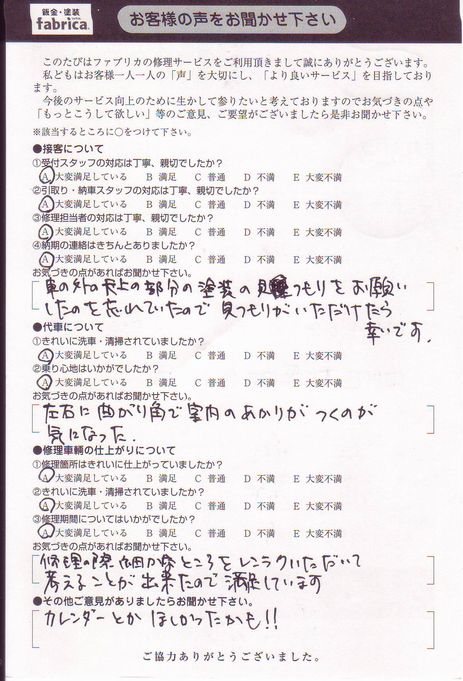 鈑金・塗装
fabrica.
お客様の声をお聞かせ下さい
このたびはファブリカの修理サービスをご利用頂きまして誠にありがとうございます。
私どもはお客様一人一人の「声」を大切にし、「より良いサービス」を目指しており
ます。
今後のサービス向上のために生かして参りたいと考えておりますのでお気づきの点や
「もっとこうして欲しい」等のご意見、ご要望がございましたら是非お聞かせ下さい。
※該当するところに○をつけて下さい。
●接客について
①受付スタッフの対応は丁寧、親切でしたか?
A 大変満足している B 満足 C 普通 D 不満 E 大変不満
②引取り・納車スタッフの対応は丁寧、親切でしたか?
A 大変満足している B 満足 C 普通 D 不満 E 大変不満
③修理担当者の対応は丁寧、親切でしたか?
A 大変満足している B 満足 C 普通 D 不満 E 大変不満
④納期の連絡はきちんとありましたか?
A 大変満足している B 満足 C 普通 D 不満 E 大変不満
お気づきの点があればお聞かせ下さい。
車の外の天上の部分の塗装の見つもりをお願い
したのを忘れていたので見つもりがいただけたら
幸いです.
●代車について
①きれいに洗車・清掃されていましたか?
A 大変満足している B 満足 C 普通 D 不満 E 大変不満
②乗り心地はいかがでしたか?
A 大変満足している B 満足 C 普通 D 不満 E 大変不満
お気づきの点があればお聞かせ下さい。
左右に曲がり角で室内のあかりがつくのが
気になった.
●修理車輌の仕上がりについて
①修理箇所はきれいに仕上がっていましたか?
A 大変満足している B 満足 C 普通 D 不満 E 大変不満
②きれいに洗車・清掃されていましたか?
A 大変満足している B 満足 C 普通 D 不満 E 大変不満
③修理期間についてはいかがでしたか?
A 大変満足している B 満足 C 普通 D 不満 E 大変不満
お気づきの点があればお聞かせ下さい。
修理の際、細かなところをレンラクいただいて
考えることが出来たので満足しています
●その他ご意見がありましたらお聞かせ下さい。
カレンダーとかほしかったかも!!
ご協力ありがとうございました。